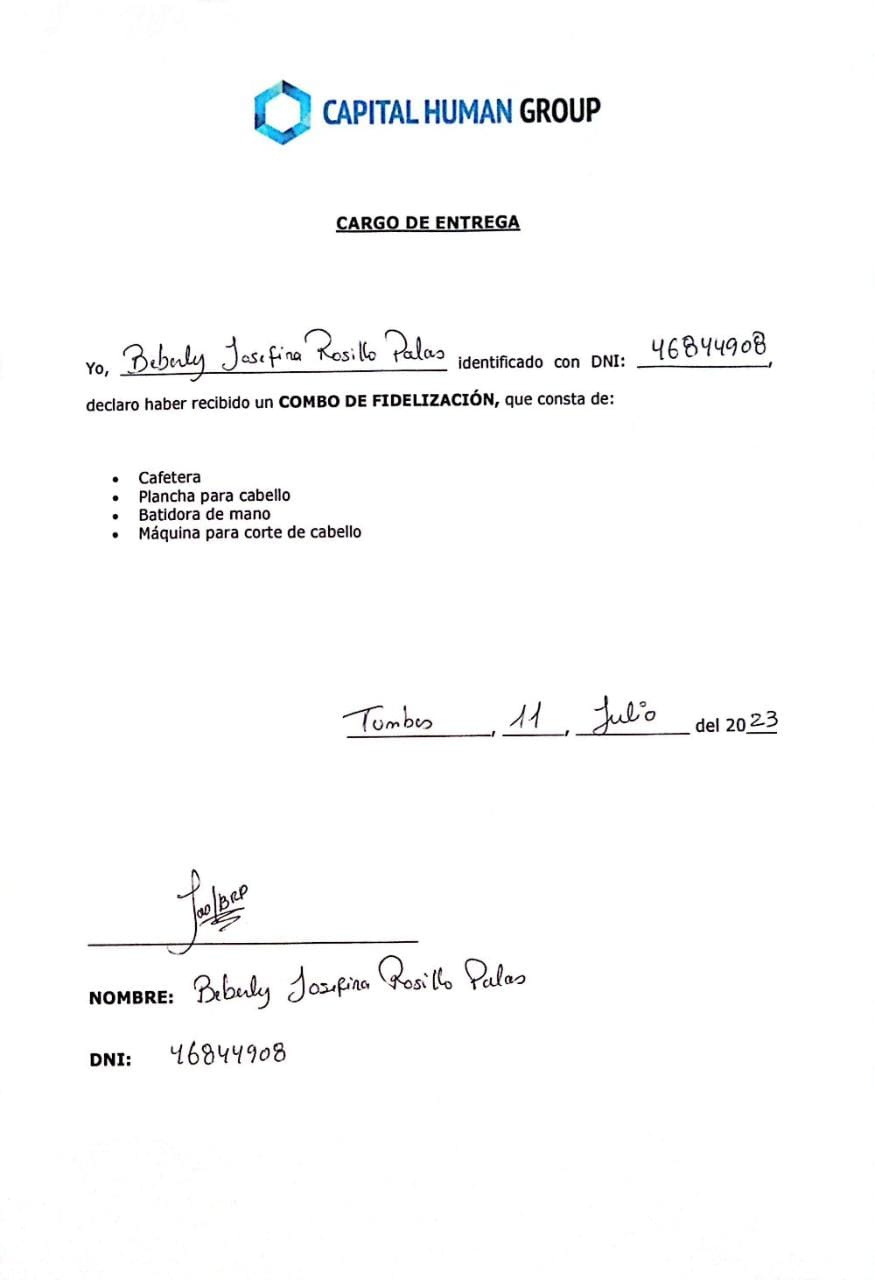 CAPITAL HUMAN GROUP
CARGO DE ENTREGA
Yo, Beberly Josefina Rosillo Palas identificado con DNI: 46844908,
declaro haber recibido un COMBO DE FIDELIZACIÓN, que consta de:
• Cafetera
• Plancha para cabello
• Batidora de mano
• Máquina para corte de cabello
Tumbes, 11, Julio del 2023
NOMBRE: Beberly Josefina Rosillo Palas
DNI: 46844908